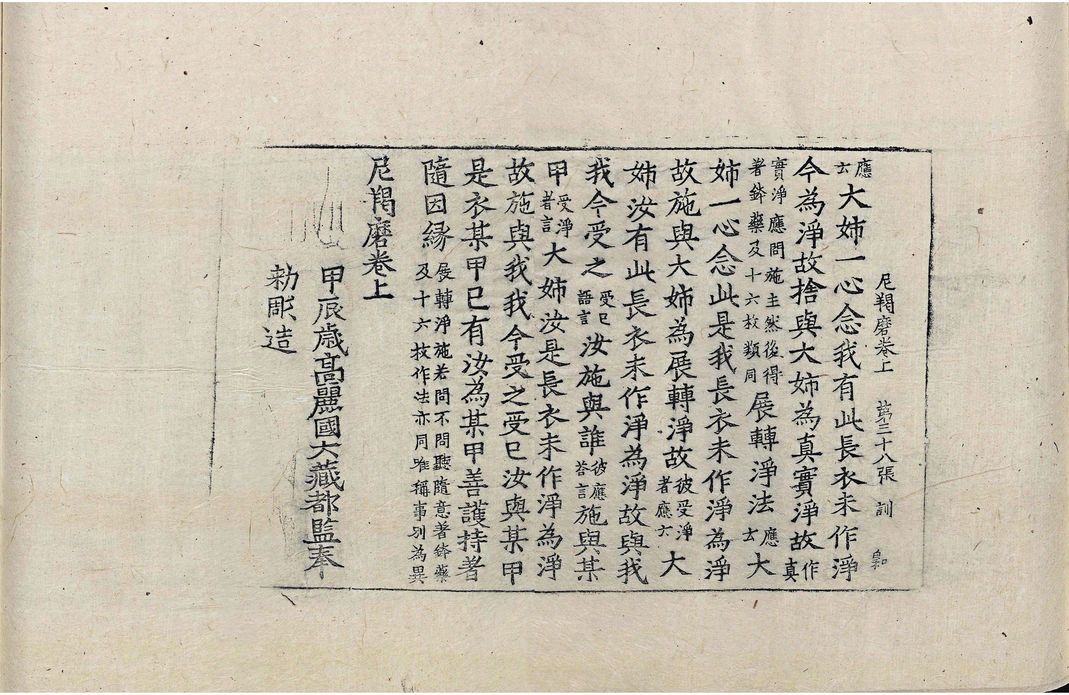 尼羯磨卷上 第三十八張 訓
應云大姉一心念我有此長衣未作淨
今為淨故捨與大姉為真實淨故作真
實淨應問施主然後得著鉢藥及十六枚類同展轉淨法應云大
姉一心念此是我長衣未作淨為淨
故施與大姉為展轉淨故彼受淨者應云大
姉汝有此長衣未作淨為淨故與我
我今受之受已語言汝施與誰彼應答言施與某
甲受淨者言大姉汝是長衣未作淨為淨
故施與我我今受之受已汝與某甲
是衣某甲已有汝為某甲善護持著
隨因緣展轉淨施若問不問聽隨意著鉢藥及十六枚作法亦同唯稱事別為異
尼羯磨卷上
甲辰歲高麗國大藏都監奉
勅彫造